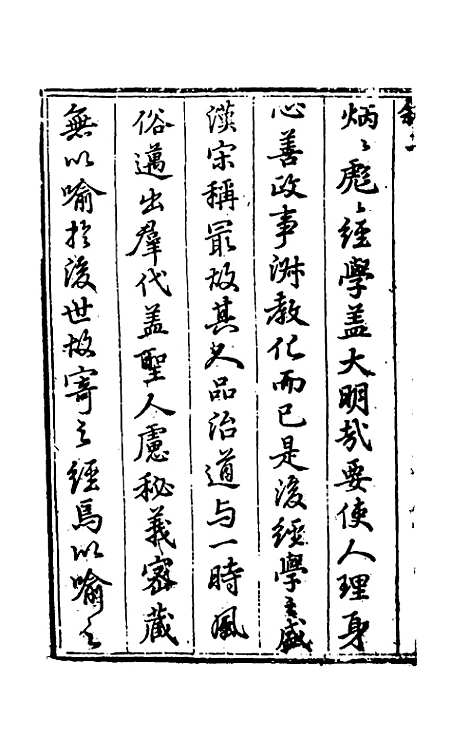 炳〻彪〻經學盖大明哉要使人理身
心善政事淑教化而已是後經學之盛
漢宋稱最故其人品治道与一時風
俗邁出羣代盖聖人慮秘義密藏
無以喻扵後世故寄之經焉以喻之